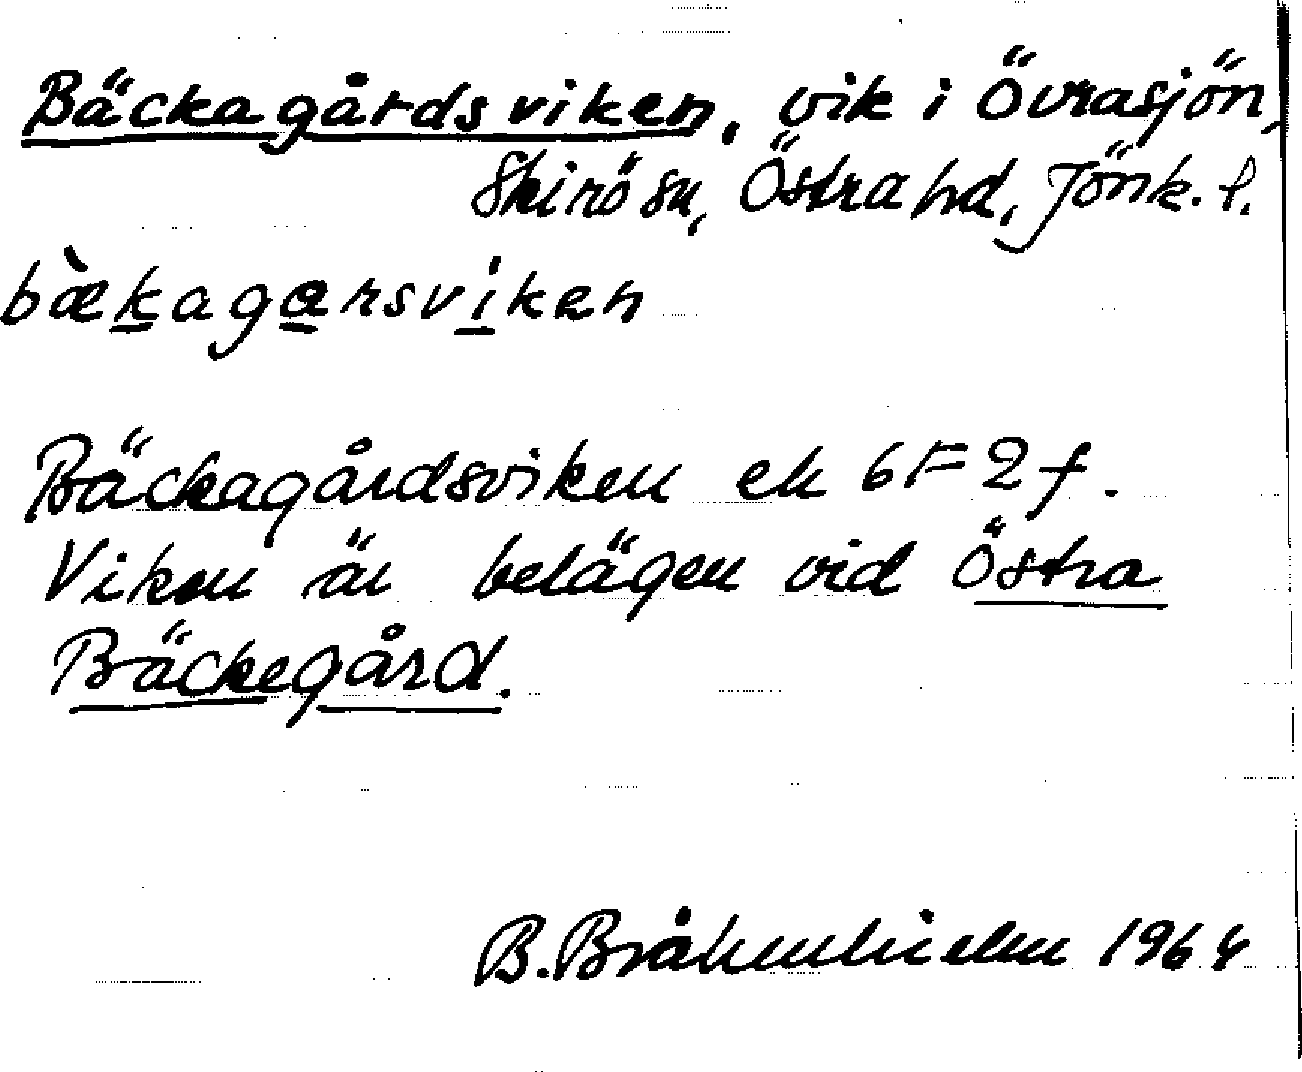 Bäckagårdsviken, vik i Övrasjön,
Skirö sn, Östra hd, Jönk. l.
bæ̀kagarsviken
Bäckagårdsviken ek 6F2f.
Viken är belägen vid Östra
Bäckegård.
B. Bråhmhielm 1964